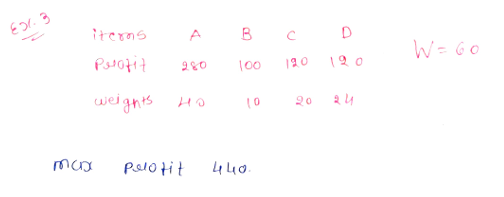 Ex. 3
items A B C D
Profit 280 100 120 120
W = 60
weights 40 10 20 24
max Profit 440.